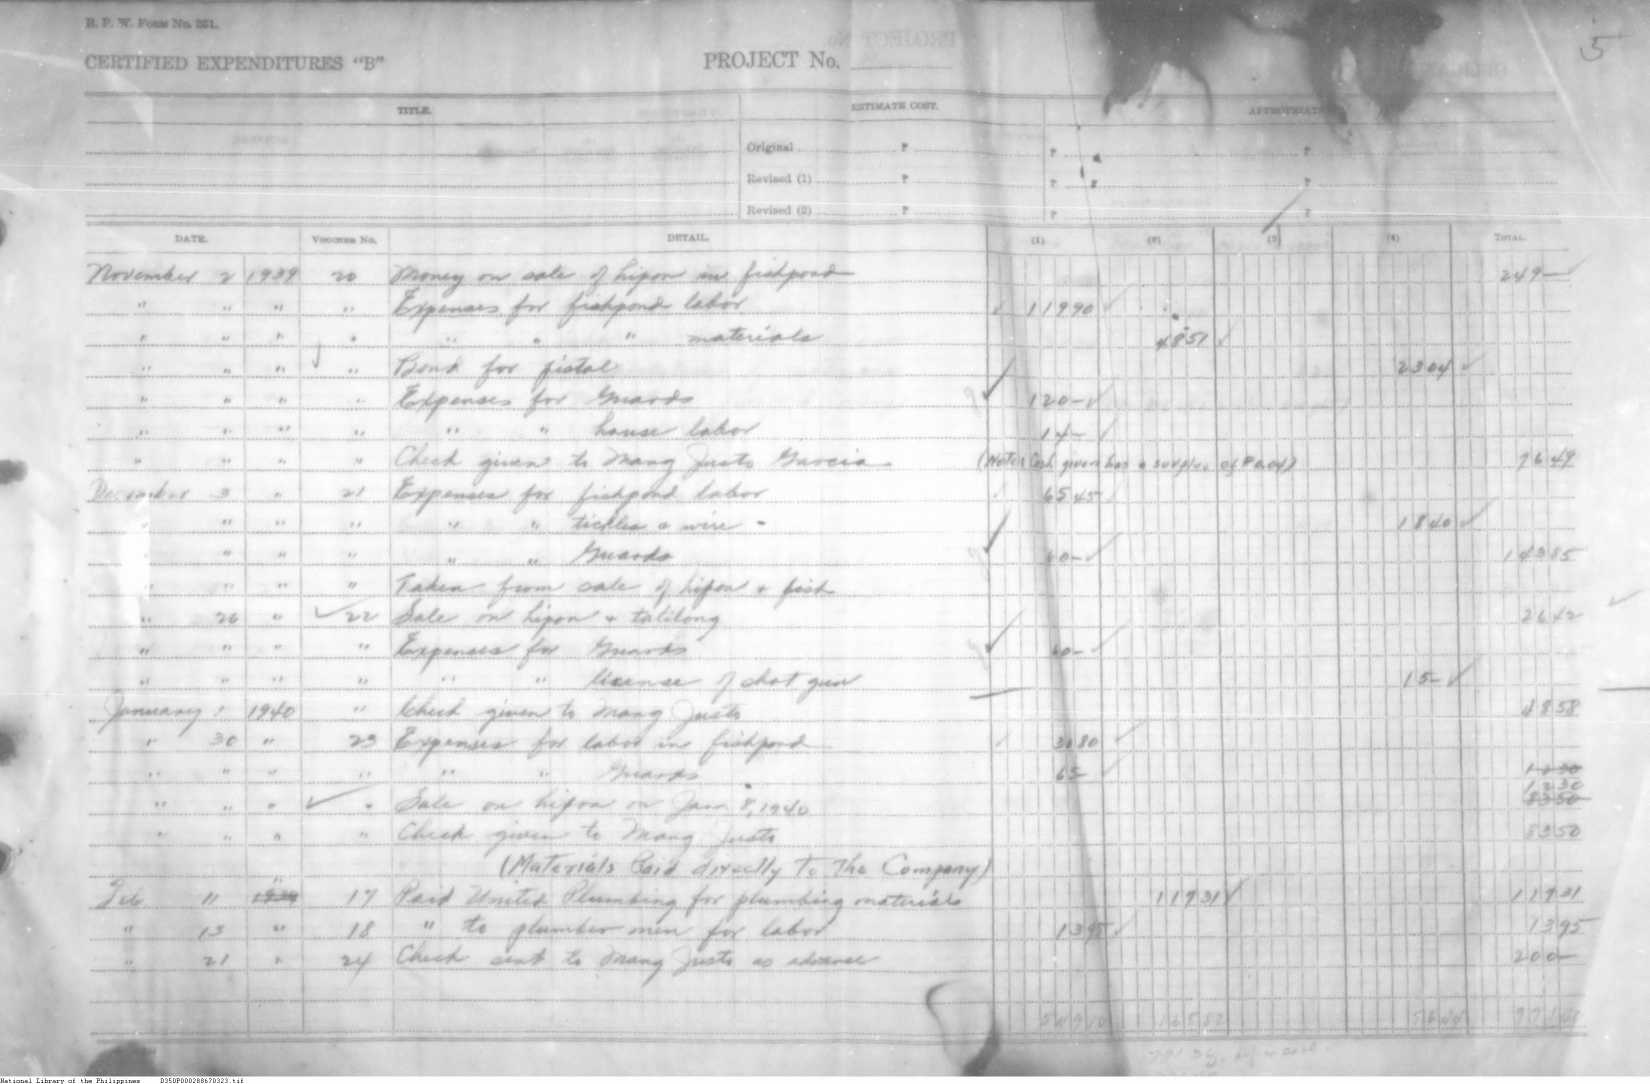 B. P. W. Form No. 261.
5
CERTIFIED EXPENDITURES "B"
PROJECT No.
TITLE.
ESTIMATE COST.
Original ₱ ₱ ₱
Revised (1) ₱ ₱ ₱
Revised (2) ₱ ₱ ₱
DATE. VOUCHER No. DETAIL. (1) (2) (3) (4) TOTAL.
November 2 1939 20 Money on sale of hipon in fishpond 249—
" " " " Expenses for fishpond labor 119 90
" " " " " " " materials 48 51
" " " " Bond for pistol 23 04
" " " " Expenses for Guards 120—
" " " " " " house labor 14—
" " " " Check given to Mang Justo Garcia (Note: Cash given has a surplus of ) 76 49
December 3 " 21 Expenses for fishpond labor 65 45
" " " " " " & wire - 18 40
" " " " " " Guards 60— 143 85
" " " " Taken from sale of hipon & fish
" 26 " 22 Sale on hipon & talilong 26 42
" " " " Expenses for Guards 60—
" " " " " " license of shot gun 15—
January 1 1940 " Check given to Mang Justo 48 58
" 30 " 23 Expenses for labor in fishpond 30 80
" " " " " " Guards 65 12 30
" " " " Sale on hipon on Jan. 8, 1940 12 30 83 50
" " " " Check given to Mang Justo 83 50
(Materials Paid directly to the Company)
Feb. 11 " 1939 17 Paid United Plumbing for plumbing materials 119 31 119 31
" 13 " 18 " to plumber men for labor 13 95 13 95
" 21 " 24 Check sent to Mang Justo as advance 200—
National Library of the Philippines D350P000288670323.tif